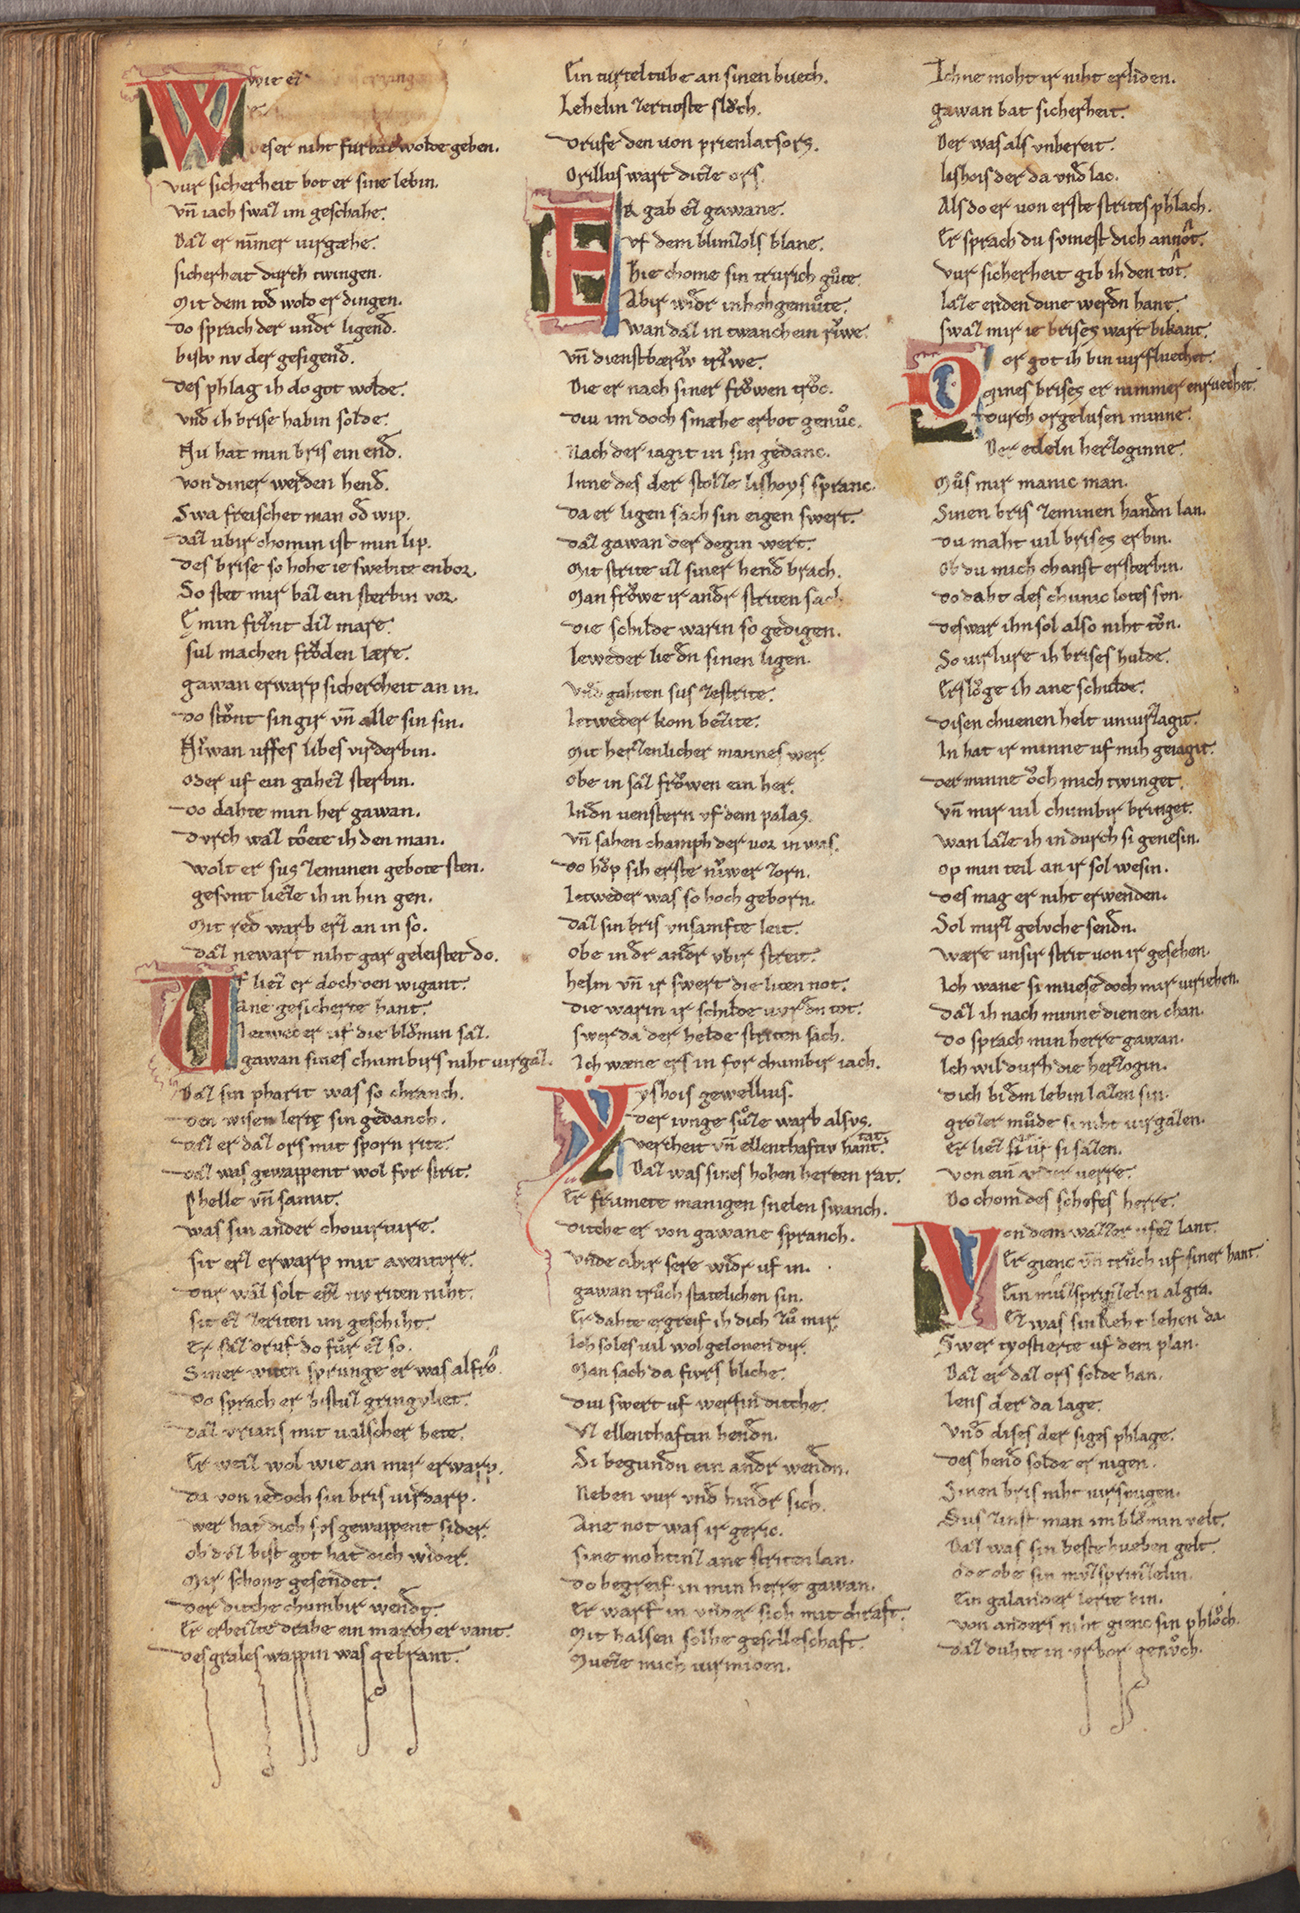 Wit er
eser niht furbaz wolde geben.
vur sicherheit bot er sine lebin.
vn̄ iach swaz im geschahe.
Daz er nim̄er uirgæhe.
sicherheit durch twingen.
Mit dem tod wold er dingen.
Do sprach der undr ligend.
bistv nv der gesigend.
Des phlag ih do got wolde.
vnd ih brise habin solde.
Nu hat min bris ein end.
von diner werden hend.
Swa freischet man od wip.
daz ubir chomin ist min lip.
Des brise so hohe ie swebite enbor.
So stet mir baz ein sterbin vor.
E min frivnt diz mare.
sul machen froͮden lære.
gawan erwarp sichercheit an in.
do stoͮnt sin gir vn̄ alle sin sin.
Niwan uffes libes virderbin.
oder uf ein gahez sterbin.
Do dahte min her gawan.
durch waz toete ih den man.
wolt er sus zeminen gebote sten.
gesvnt lieze ih in hin gen.
Mit red warb erz an in so.
daz newart niht gar geleistet do.
Vf liez er doch den wigant.
Ane gesicherte hant.
Ietweder uf die bloͮmin saz.
gawan sines chumbirs niht uirgaz.
Daz sin pharit was so chranch.
den wisen lerte sin gedanch.
daz er daz ors mit sporn rite.
daz was gewappent wol fvr strit.
Phelle vn̄ samit.
was sin ander chouirture.
sit erz erwarp mit aventvre.
dur waz solt erz nv riten niht.
sit ez zeriten im geschiht.
Er saz druf do fuͦr ez so.
Siner witen sprunge er was al fro.
Do sprach er bistuz gringvliet.
daz vrians mit valscher bete.
Er weiz wol wie an mir erwarp.
da von iedoch sin bris uirdarp.
wer hat dich sus gewappent sider.
ob dvz bist got hat dich wider.
Mir schone gesendet.
der dicche chumbir wendt.
Er erbeizte drabe ein march er vant.
Des grales wappin was gebrant.
Ein turteltube an sinen buech.
Lehelin zertioste sloͮch.
Drufe den von prienlatsors.
Orillus wart ditze ors.
Er gab ez gawane.
vf dem blimizols blane.
hie chome sin trurich guͦte.
Abir widr in hohgemuͦte.
wan daz in twanch ein riwe.
vn̄ dienstbæriv triwe.
Die er nach siner froͮwen troͮc.
diu im doch smæhe erbot genuͦc.
Nach der iagit in sin gedanc.
Inne des der stolze lishoys spranc.
da er ligen sach sin eigen swert.
daz gawan der degin wert.
Mit strite uz siner hend brach.
Man froͮwe ir andr striten sach.
die schilde warin so gedigen.
Ieweder lie dn sinen ligen.
vnd gahten sus zestrite.
Ietweder kom bezite.
Mit herzenlicher mannes wer.
obe in saz froͮwen ein her.
Indn uenstern vf dem palas.
vn̄ sahen champh der vor in was.
Do hoͮp sih erste niwer zorn.
Ietweder was so hoch geborn.
daz sin bris vnsamfte leit.
obe in dr andr vbir streit.
helm vn̄ ir swert die liten not.
die warin ir schilde uvr dn tot.
swer da der helde striten sach.
Ich wæne ers in fvr chumbir iach.
Lyshois gewellius.
der iunge suͦze warb alsvs.
vercheit vn̄ ellenthaftiv hant. tat.
Daz was sines hohen herten rat.
Er frumete manigen snelen swanch.
dicche er von gawane spranch.
vnde abir sere widr uf in.
gawan truͦch stætelichen sin.
Er dahte ergreif ih dich zuͦ mir.
Ich soles uil wol gelonen dir.
Man sach da fivrs bliche.
diu swert uf werfin dicche.
Vz ellenthaftin hendn.
Si begundn ein andr wendn.
Neben vur vnd hindr sich.
Ane not was ir geric.
sine mohtinz ane striten lan.
do begreif in min herre gawan.
Er warf in vnder sich mit chraft.
Mit halsen solhe geselleschaft.
Mueze mich uirmiden.
Ichne moht ir niht erliden.
gawan bat sicherheit.
Der was als vnbereit.
lishois der da vnd lac.
Als do er uon erste strites phlach.
Er sprach du svmest dich an not.
Vur sicherheit gib ih den tot.
laze enden dine werdn hant.
swaz mir ie brises wart bikant.
Vor got ih bin uirfluechet.
mines brises er nimmer enruechet.
durch orgelusen minne.
Der edeln herzoginne.
Muͦs mir manic man.
Sinen bris zeminen handn lan.
du maht uil brises erbin.
Ob du mich chanst ersterbin.
Do daht des chunic lotes svn.
deswar ihn sol also niht tuͦn.
So uirlure ih brises hulde.
Ersloͮge ih ane schulde.
disen chuenen helt unuirzagit.
In hat ir minne uf mih geiagit.
der minne oͮch mich twinget.
vn̄ mir uil chumbir bringet.
wan laze ih in durch si genesin.
op min teil an ir sol wesin.
des mag er niht erwenden.
Sol mirz gelvche sendn.
wære unsir strit von ir gesehen.
Ich wane si muese doch mir uiriehen.
daz ih nach minne dienen chan.
Do sprach min herre gawan.
Ich wil durh die herzogin.
dich bi dim lebin lazen sin.
grozer muͦde si niht uirgazen.
Er liez in uf si sazen.
von ein ander verre.
Do chom des schefes herre.
Von dem wazzer ufez lant.
Er gienc vn̄ truͦch uf siner hant.
Ein muzsprinzelin al gra.
Ez was sin reht lehen da.
Swer tyostierte uf dem plan.
Daz er daz ors solde han.
Iens der da lage.
Vnd dises der siges phlage.
des hend solde er nigen.
Sinen bris niht uirswigen.
Sus zinst man im bloͮmin velt.
Daz was sin beste hueben gelt.
ode obe sin mvzsprinzelin.
Ein galander lerte pin.
von anders niht gienc sin phloͮch.
daz duhte in vrbor genoͮch.